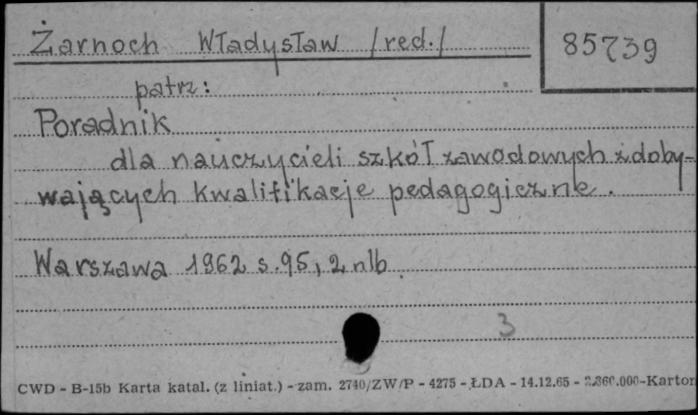 Żarnoch Władysław /red./
85739
patrz:
Poradnik
dla nauczycieli szkół zawodowych zdoby-
wających kwalifikacje pedagogiczne.
Warszawa 1962 s. 95, 2 nlb
3
CWD - B-15b Karta katal. (z liniat.) - zam. 2740/ZW/P - 4275 - ŁDA - 14.12.65 - 2.360.000-Karton